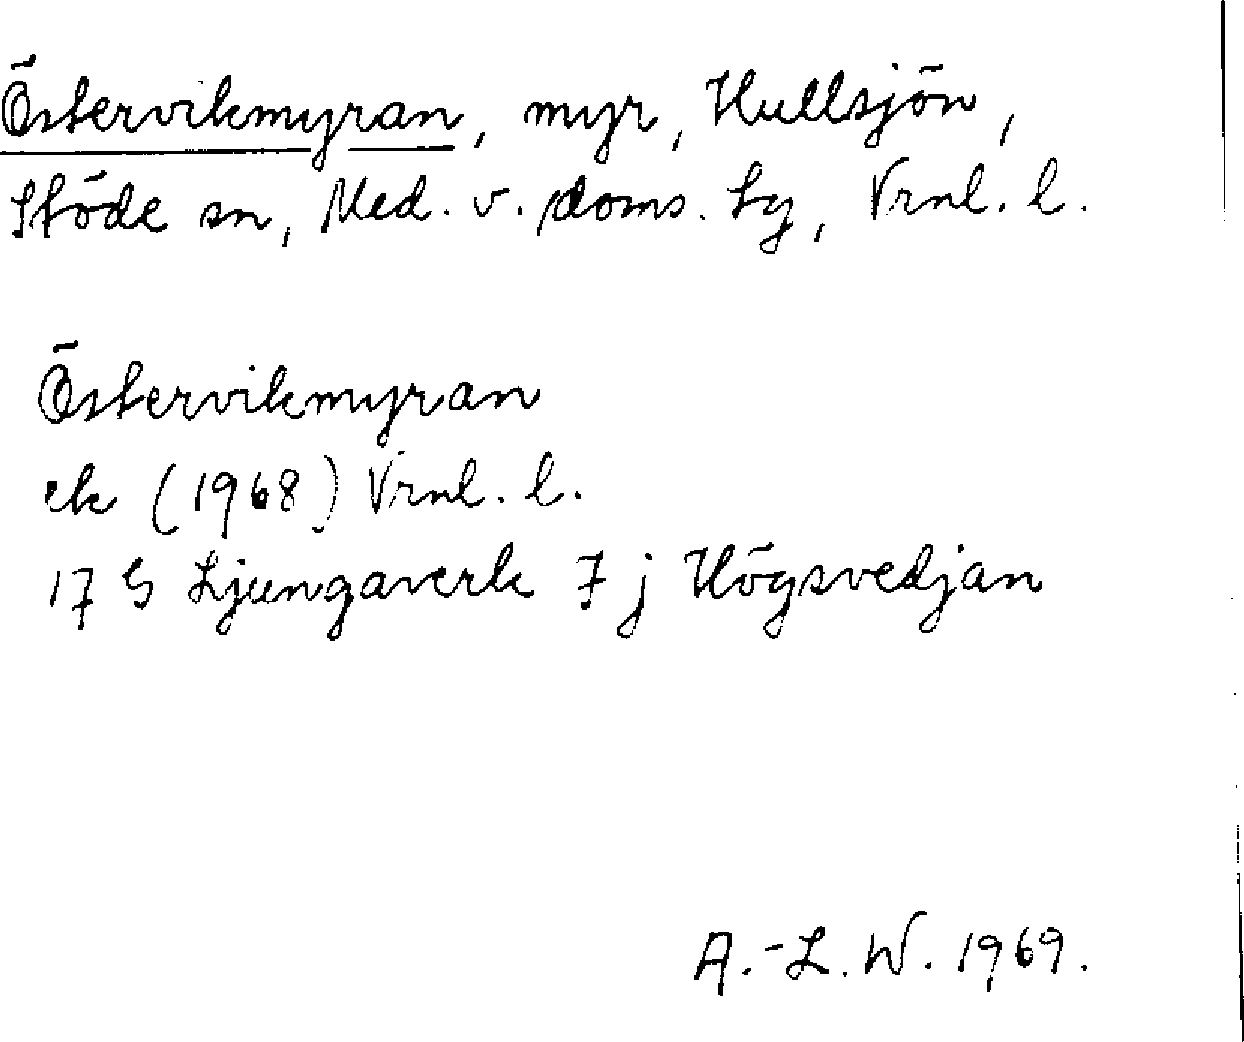 Östervikmyran, myr, Hullsjön,
Stöde sn, Med. v. doms. tg, Vrnl. l.
Östervikmyran
ek (1968) Vrnl. l.
17 G Ljungaverk 7 j Högsvedjan
A.-L. W. 1969.